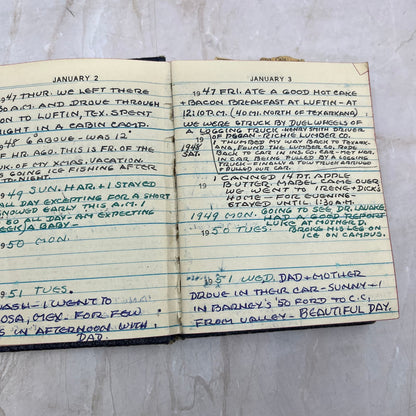 JANUARY 2
1947 THUR. WE LEFT THERE
30 A.M. AND DROVE THROUGH
ON TO LUFTIN, TEX. SPENT
NIGHT IN A CABIN CAMP.
1948 6 ABOVE - WAS 12°
OF HR. AGO. THIS IS FRI. OF THE
WK. OF MY XMAS. VACATION.
IS GOING ICE FISHING AFTER
1949 SUN. HAR. + I STAYED
ALL DAY EXCEPTING FOR A SHORT
SNOWED EARLY THIS A.M. /
SO ALL DAY - AM EXPECTING
A BABY -
1950 MON.
1951 TUES.
WASH - I WENT TO
OSA, MEX. FOR FEW
S IN AFTERNOON WITH
DAD.
JANUARY 3
1947 FRI. ATE A GOOD HOT CAKE
+ BACON BREAKFAST AT LUFTIN - AT
12:10 P.M. (40 MI. NORTH OF TEXARKANA)
WE WERE STRUCK BY DUEL WHEELS OF
A LOGGING TRUCK - HENRY SMITH DRIVER
OF - RICHIE LUMBER CO.
1948 SAT. I THUMBED MY WAY BACK TO TEXARK-
ANA, FOUND THE LUMBER CO. RODE
BACK TO CAR IN INS. CO. MEN'S CAR.
IN CAR BEING PULLED BY A LOGGING
TRUCK - FINALLY A TOW TRUCK ARRIVED
+ PULLED OUR CAR.
I CANNED 14 PT. APPLE
BUTTER. MABEL CAME OVER
WE WENT TO IRENE + DICK'S
HOME - FOR EVENING -
STAYED UNTIL 11:30 A.M.
1949 MON. GOING TO SEE DR.
HAD A GOOD REPORT
LUKE AT MOTHER D.
1950 TUES. BROKE HIS LEG ON
ICE ON CAMPUS.
1951 WED. DAD + MOTHER
DROVE IN THEIR CAR - SUNNY + I
IN BARNEY'S '50 FORD TO C.C,
FROM VALLEY - BEAUTIFUL DAY.